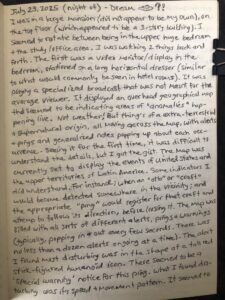 July 23, 2025 (night of) - Dream
I was in a large mansion (did not appear to be my own), on
the top floor (which appeared to be a 3-story building). I
seemed to rotate between being in the upper huge bedroom
+ the study/office area. I was watching 2 things back and
forth. The first was a video monitor/display in the
bedroom, positioned on a long horizontal dresser (similar
to what would commonly be seen in hotel rooms). It was
playing a specialized broadcast that was not meant for the
average viewer. It displayed an overhead geographical map
that seemed to be indicating areas of "anomalies" hap-
pening live. Not weather! But things of an extra-terrestrial
or supernatural origin, all moving across the map, with alerts
+ pings and generalized notes popping up about each oc-
currence. Seeing it for the first time, it was difficult to
understand the details, but I got the gist. The map was
currently set to display the events of United States and
the upper territories of Latin America. Some indicators I
did understand. For instance: when an "orb" or "craft"
would become detected somewhere in the vicinity, and
the appropriate "pong" would register for that craft and
seem to follow its direction before losing it. The map was
filled with all sorts of different alerts, pings + warnings
(typically, popping in + out every few seconds. There was
no less than a dozen alerts on-going at a time). The alert
I found most disturbing was in the shape of a tall red
stick-figured humanoid icon. There seemed to be a
"special warning" notice for this ping. What I found dis-
turbing was its speed + movement pattern. It seemed to